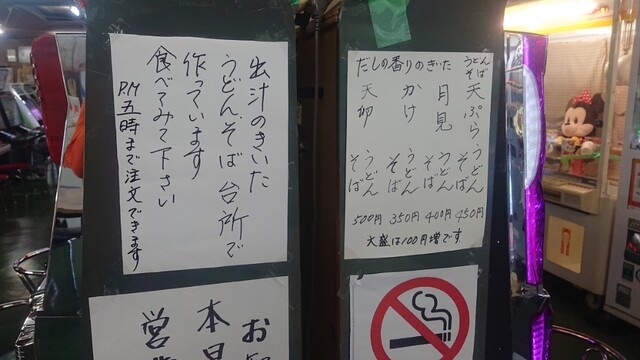 出汁のきいた
うどん、そば 台所で
作っています
食べてみて下さい
P.M 五時まで注文できます
だしの香りのきいた うどん そば
天ぷら うどん そば 450円
月見 うどん そば 400円
かけ うどん そば 350円
天卵 うどん そば 500円
大盛は100円増です
お知
本日
営業